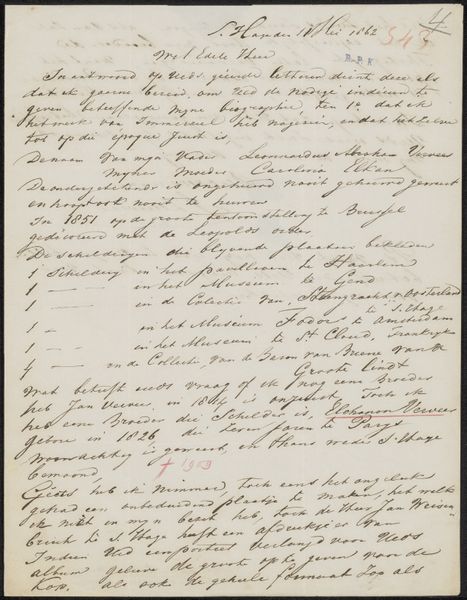 4
S. Hage den 1 Mei 1862
543
R.P.K
Wel Edele Heer
In antwoord op UEds. geëerde letteren dient deze als
dat ik gaarne bereid om UEd de nodige
geven betreffende myne biographie, ten 1e dat ik
het werk van Immerzeel heb nagezien, en dat het zelve
tot op die epoque juist is,
De naam Van mijn Vader Leonardus Abraham Verveer
Mijner Moeder Carolina Elkan
De ondergetekende is ongehuwd nooit gehuwd geweest
en hoopt ook nooit te huwen
In 1851 op de groote tentoonstelling te Brussel
gedecoreerd met de Leopolds orde
De schilderijen die blijvende plaatsen bekleden
1 Schilderij in het paviljoen te Haarlem
1 — — in het Museum te Gend
1 — — in de Colectie van Steengracht v Oosterland
te S. Hage
1 — in het Museum Fodor te Amsterdam
1 — in het Museum te St Cloud, Frankrijk
4 — in de Collectie van de Baron van Brienne van de
Groote Lindt
Wat betreft UEds vraag of ik nog een Broeder
heb Jan Verveer in 1814 is onjuist, doch ik
heb een Broeder die Schilder is, Elchanon Verveer
geboren in 1826 die zeven jaren te Parijs
woonachtig is geweest, en thans weder S. Hage
bewoond,
† 1903
Geëts heb ik nimmer, doch eens het ongeluk
gehad een onbeduidend plaatje te maken, het welke
ik niet in myn bezit heb, doch de Heer Jan Weissen
bruch te S. Hage heeft een afdrukje van
Indien UEd een portret verlangd voor UEds
album gelieve de groote op te geven van de
Kop. als ook de geheele formaat zoo als